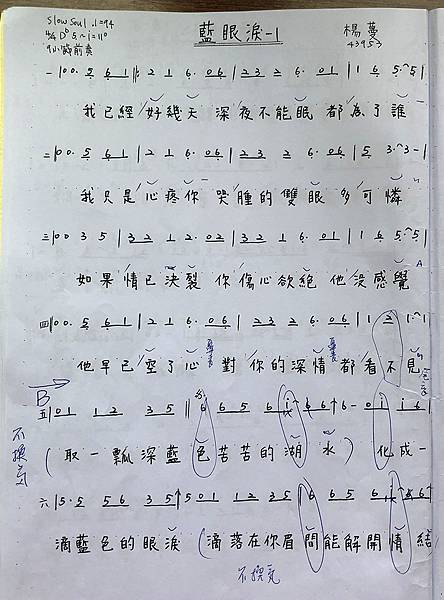 Slow Soul ♩=94
藍眼淚-1
楊蔓
4/4 D♭ 5~i=110
43953
9小節前奏
一 |00· 5 6 1 | 2 1 6· 06 | 2 3 2 6· 01 | 1 6 5·^5 |
我已經好幾天 深夜不能眠 都為了誰
二 |00· 5 6 1 | 2 1 6· 06 | 2 3 2 6· 05 | 3·^3- |
我只是心疼你 哭腫的雙眼 多可憐
三 |00 3 5 | 2 2 1 2· 02 | 3 2 1 6· 01 | 1 6 5·^5 |
如果情已決裂 你傷心欲絕 他沒感覺
四 |00· 5 6 1 | 2 1 6· 06 | 2 3 2 6· 01 | 1 2 1·^1 |
他早已空了心 對你的深情都看不見
B
五 |01 1 2 3 5 | 6 6 5 6 i 6 | 6 6- 0i i6 |
不換氣
(取一瓢深藍色苦苦的湖水) 化成一
六 |5·5 56 35 | 501 12 35 | 6 65 6i 66 |
滴藍色的眼淚 (滴落在你眉間能解開情結
不換氣